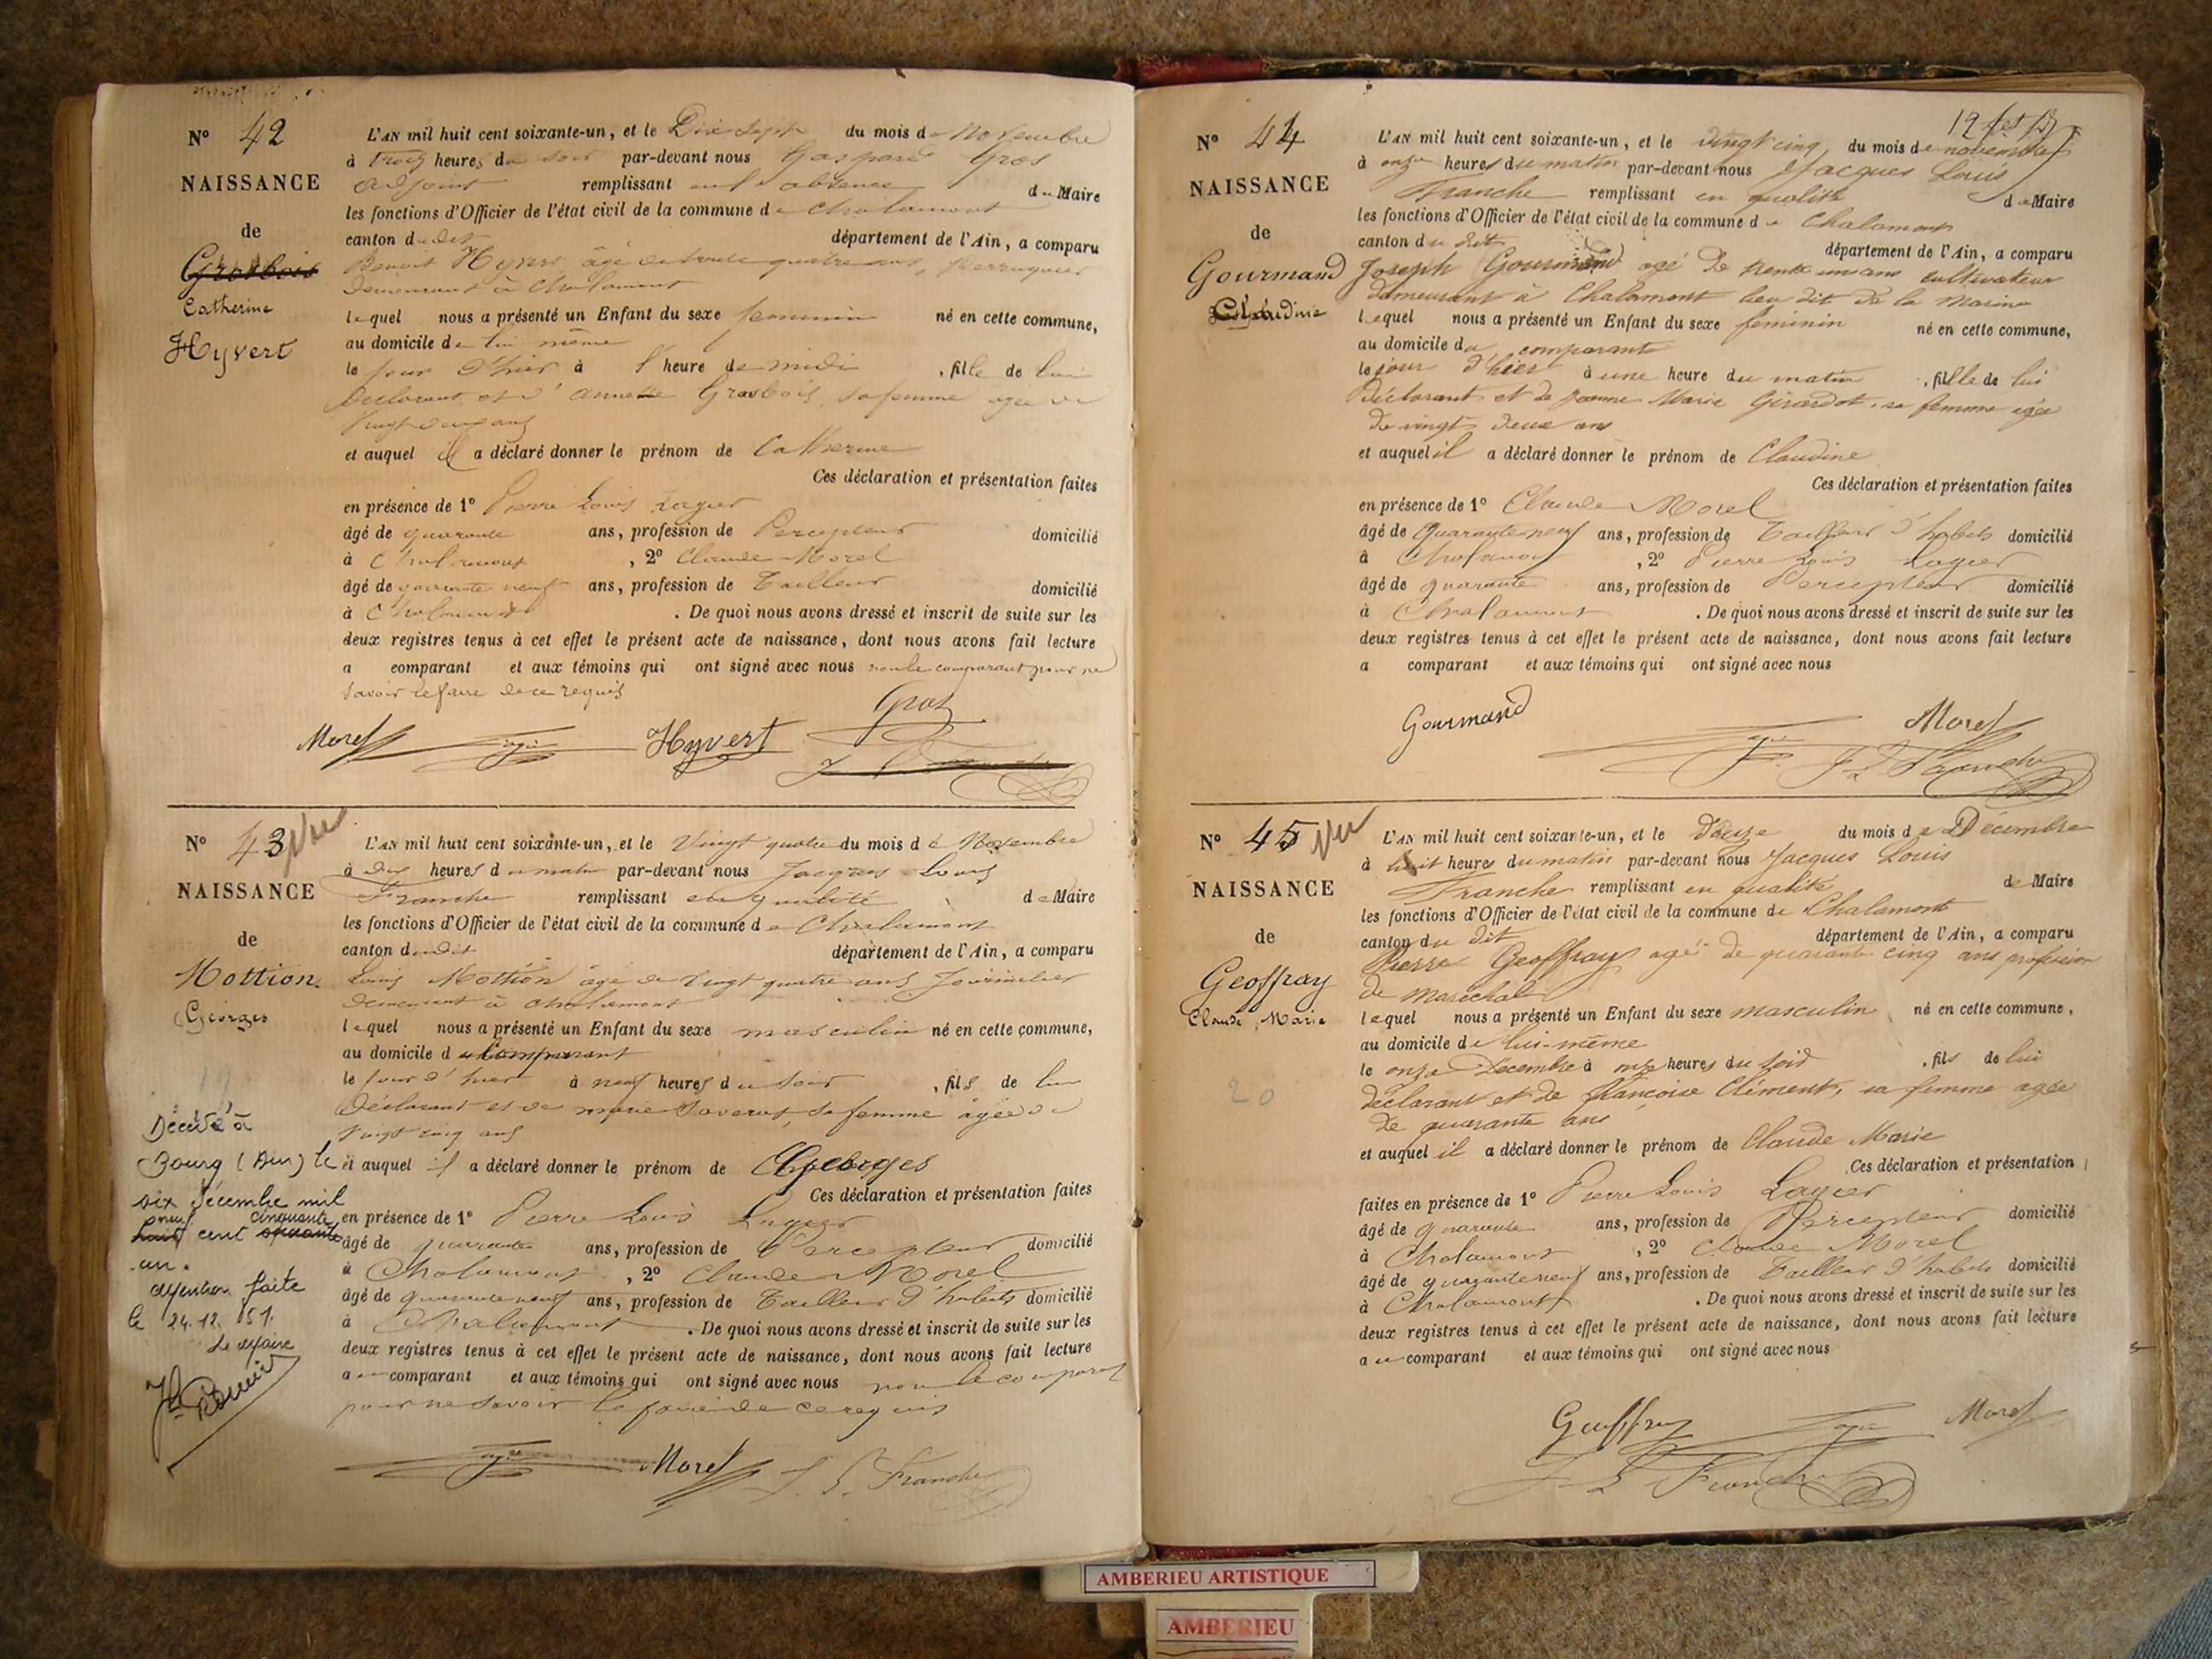 Nº 42
NAISSANCE
de
Grosbois
Catherine
Hyvert
L'AN mil huit cent soixante-un, et le Dix Sept du mois de Novembre
à trois heures du soir par-devant nous Gaspard Gros
adjoint remplissant en l'absence du Maire
les fonctions d'Officier de l'état civil de la commune de Chalamont
canton dudit département de l'Ain, a comparu
Benoit Hyvert âgé de trente quatre ans, Perruquier
demeurant à Chalamont
lequel nous a présenté un Enfant du sexe feminin né en cette commune,
au domicile de lui même
le jour d'hier à l'heure de midi , fille de lui
déclarant et d'anne Grosbois, sa femme agée de
vingt deux ans
et auquel il a déclaré donner le prénom de Catherine
Ces déclaration et présentation faites
en présence de 1º Pierre Louis Lagier
âgé de quarante ans, profession de Percepteur domicilié
à Chalamont , 2º Claude Morel
âgé de quarante neuf ans, profession de Tailleur domicilié
à Chalamont . De quoi nous avons dressé et inscrit de suite sur les
deux registres tenus à cet effet le présent acte de naissance, dont nous avons fait lecture
a comparant et aux témoins qui ont signé avec nous non le comparant pour ne
savoir le faire de ce requis
Gros
Morel Hyvert
Nº 43 Vu
NAISSANCE
de
Mottion
Georges
L'AN mil huit cent soixante-un, et le Vingt quatre du mois de Novembre
à dix heures du matin par-devant nous Jacques Louis
Franche remplissant en qualité de Maire
les fonctions d'Officier de l'état civil de la commune de Chalamont
canton dudit département de l'Ain, a comparu
Louis Mottion âgé de vingt quatre ans Journalier
demeurant à Chalamont
lequel nous a présenté un Enfant du sexe masculin né en cette commune,
au domicile du Comparant
le jour d'hier à neuf heures du soir , fils de lui
déclarant et de marie Saveros, sa femme âgée de
vingt cinq ans
et auquel il a déclaré donner le prénom de Georges
Ces déclaration et présentation faites
en présence de 1º Pierre Louis Lagier
âgé de quarante ans, profession de Percepteur domicilié
à Chalamont , 2º Claude Morel
âgé de quarante neuf ans, profession de Tailleur d'habits domicilié
à Chalamont . De quoi nous avons dressé et inscrit de suite sur les
deux registres tenus à cet effet le présent acte de naissance, dont nous avons fait lecture
au comparant et aux témoins qui ont signé avec nous non le comparant
pour ne savoir le faire de ce requis
Morel J. L. Franche
19
Décédé à
Bourg (Ain) le
six décembre mil
neuf cinquante
huit cent soixante
un.
Mention faite
le 24.12.1951.
Le Maire
Nº 44
NAISSANCE
de
Gourmand
Claudine
L'AN mil huit cent soixante-un, et le vingt cinq du mois de novembre
à onze heures du matin par-devant nous Jacques Louis
Franche remplissant en qualité de Maire
les fonctions d'Officier de l'état civil de la commune de Chalamont
canton du dit département de l'Ain, a comparu
Joseph Gourmand agé de trente un ans cultivateur
demeurant à Chalamont lieu dit de la Marine
lequel nous a présenté un Enfant du sexe feminin né en cette commune,
au domicile du comparant
le jour d'hier à une heure du matin , fille de lui
Déclarant et de Jeanne Marie Girardot, sa femme agée
de vingt deux ans
et auquel il a déclaré donner le prénom de Claudine
Ces déclaration et présentation faites
en présence de 1º Claude Morel
âgé de Quarante neuf ans, profession de Tailleur d'habits domicilié
à Chalamont , 2º Pierre Louis Lagier
âgé de quarante ans, profession de Percepteur domicilié
à Chalamont . De quoi nous avons dressé et inscrit de suite sur les
deux registres tenus à cet effet le présent acte de naissance, dont nous avons fait lecture
a comparant et aux témoins qui ont signé avec nous
Gourmand Morel
J L Franche
Nº 45 Vu
NAISSANCE
de
Geoffray
Claude Marie
20
L'AN mil huit cent soixante-un, et le douze du mois de Décembre
à huit heures du matin par-devant nous Jacques Louis
Franche remplissant en qualité de Maire
les fonctions d'Officier de l'état civil de la commune de Chalamont
canton du dit département de l'Ain, a comparu
Pierre Geoffray agé de quarante cinq ans profession
de marechal
lequel nous a présenté un Enfant du sexe masculin né en cette commune,
au domicile de lui-même
le onze Décembre à onze heures du soir , fils de lui
déclarant et de françoise Clément, sa femme agée
de quarante ans
et auquel il a déclaré donner le prénom de Claude Marie
Ces déclaration et présentation
faites en présence de 1º Pierre Louis Lagier
âgé de quarante ans, profession de Percepteur domicilié
à Chalamont , 2º Claude Morel
âgé de quarante neuf ans, profession de Tailleur d'habits domicilié
à Chalamont . De quoi nous avons dressé et inscrit de suite sur les
deux registres tenus à cet effet le présent acte de naissance, dont nous avons fait lecture
au comparant et aux témoins qui ont signé avec nous
Geoffray Morel
J L Franche
AMBERIEU ARTISTIQUE
AMBERIEU